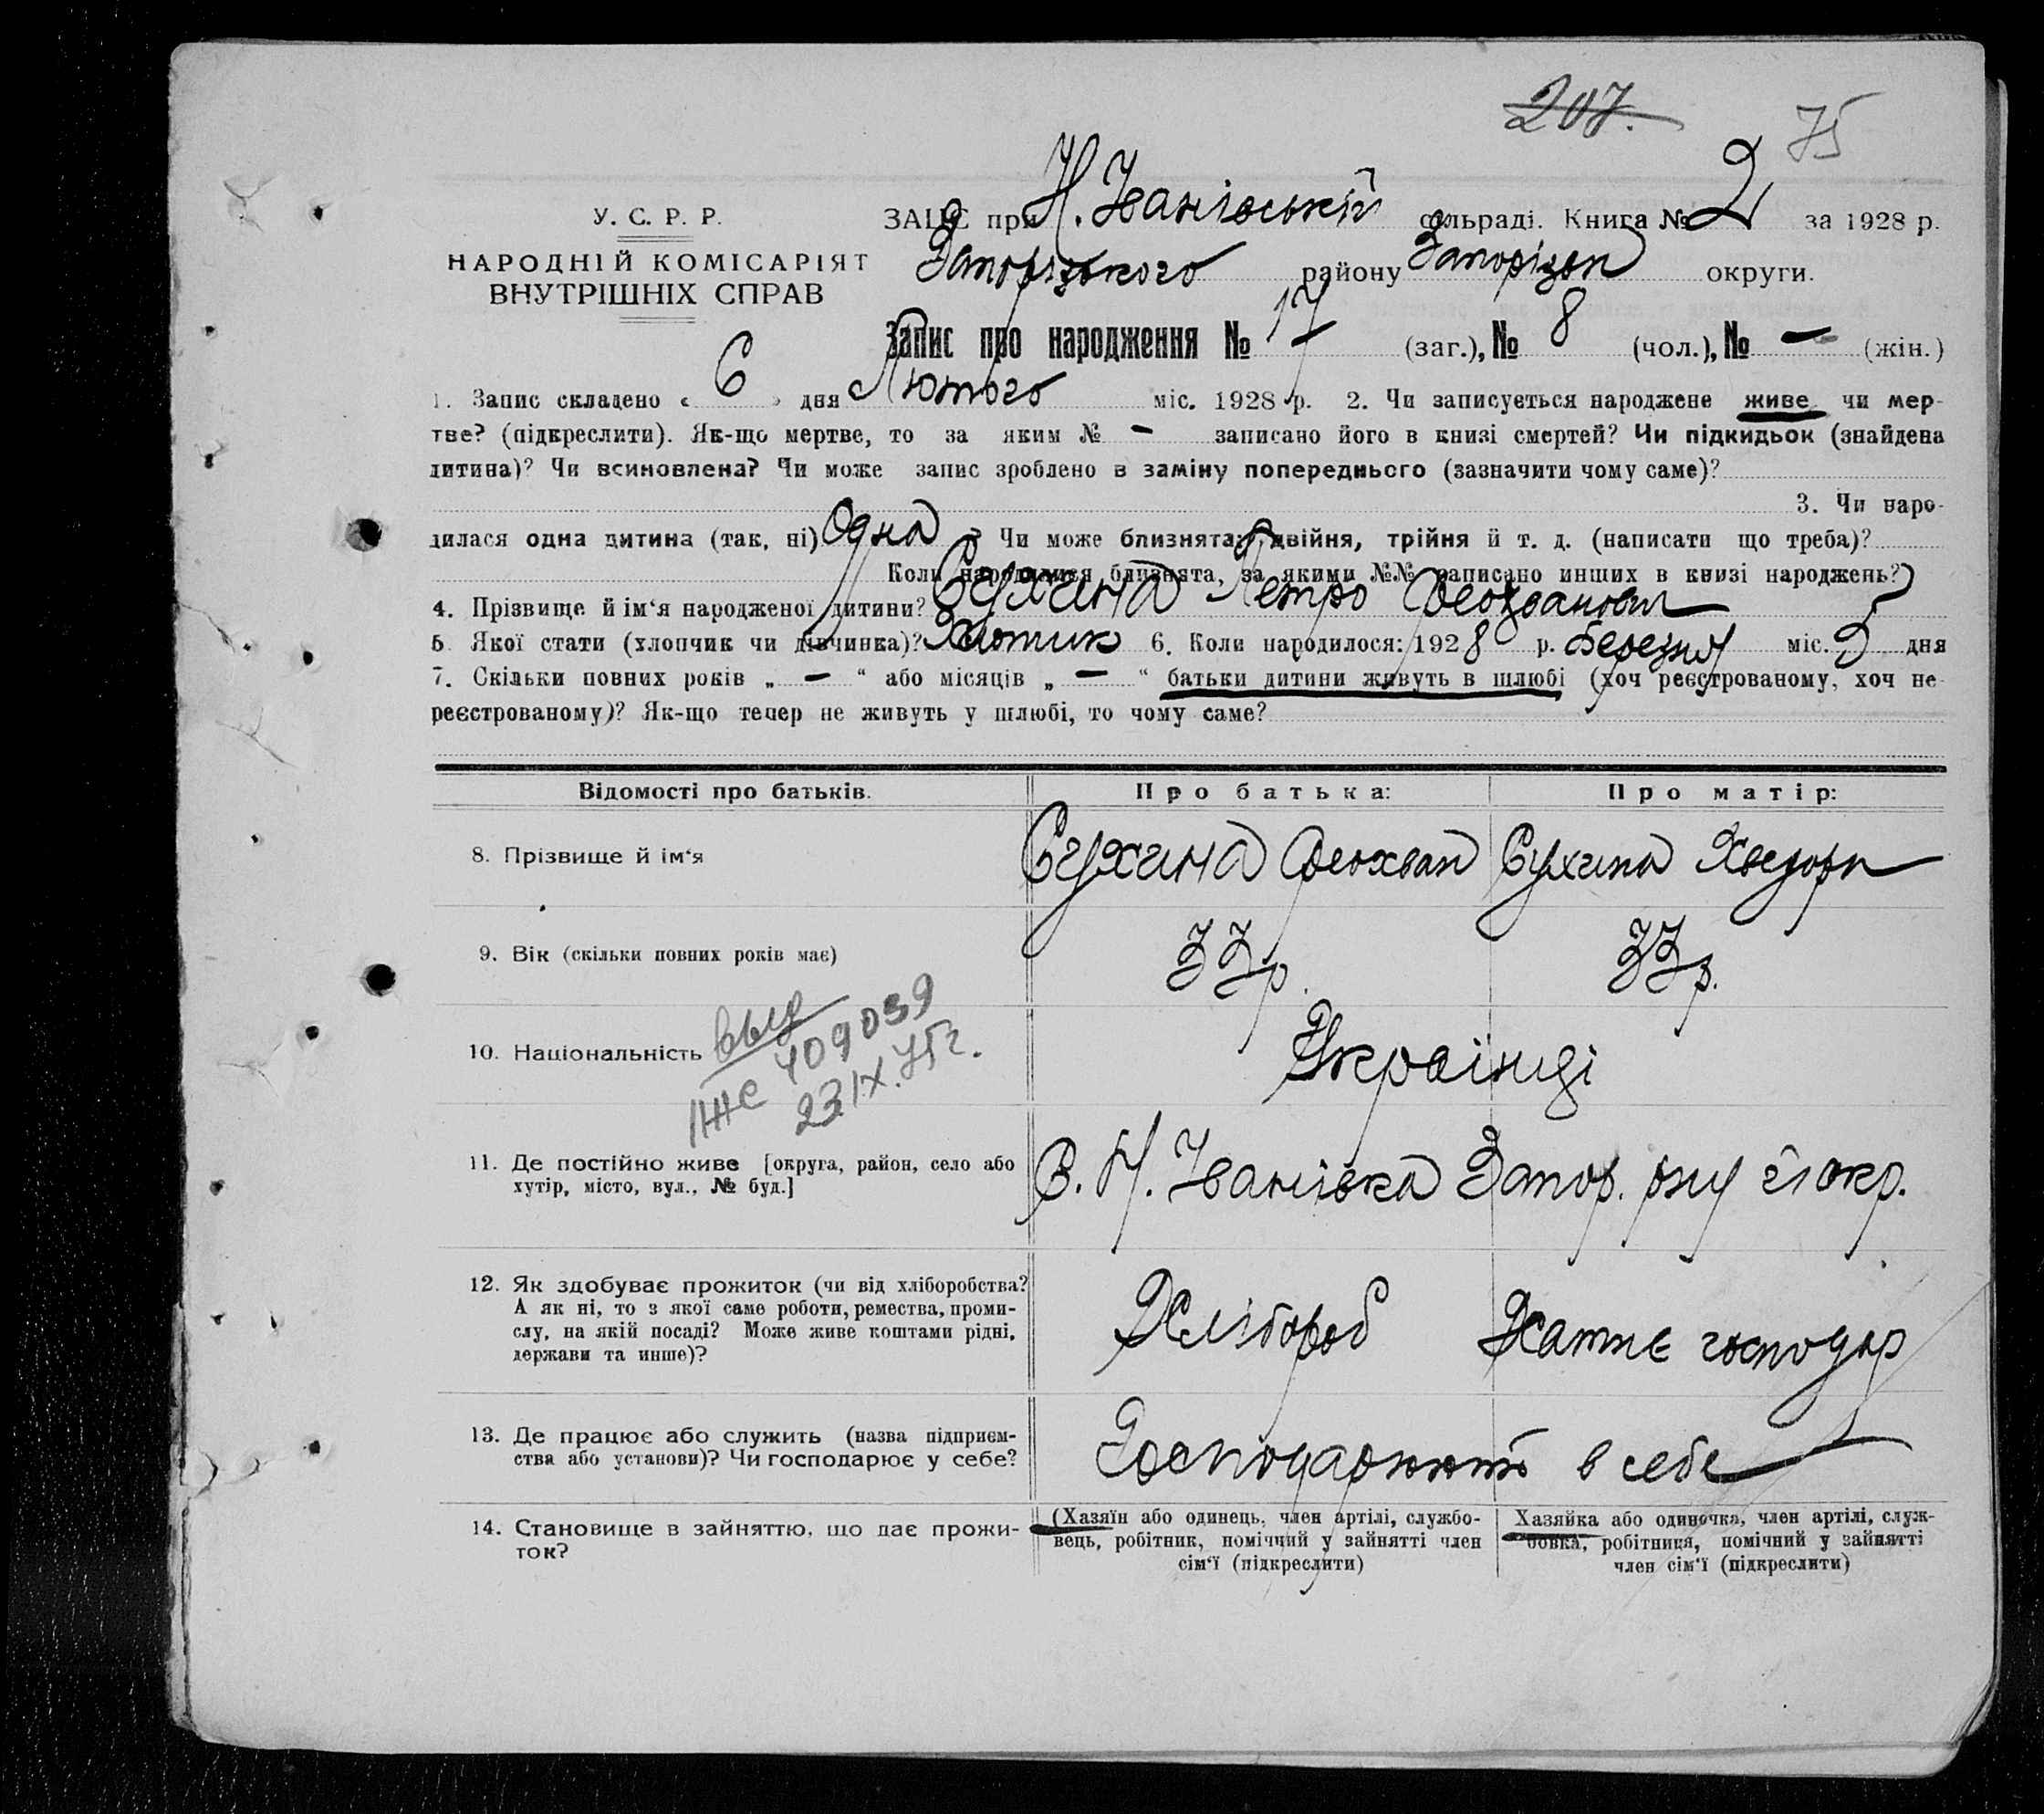 207. 75
У. С. Р. Р.
НАРОДНІЙ КОМІСАРІЯТ
ВНУТРІШНІХ СПРАВ
ЗАПИС при Н. Іванівській сільраді. Книга № 2 за 1928 р.
Запорізького району Запорізьк округи.
Запис про народження № 17 (заг.), № 8 (чол.), № — (жін.)
1. Запис складено « 6 » дня Лютого міс. 1928 р. 2. Чи записується народжене живе чи мер-
тве? (підкреслити). Як-що мертве, то за яким № - записано його в книзі смертей? Чи підкидьок (знайдена
дитина)? Чи всиновлена? Чи може запис зроблено в заміну попереднього (зазначити чому саме)?
3. Чи наро-
дилася одна дитина (так, ні) Одна ? Чи може близнята: двійня, трійня й т. д. (написати що треба)?
Коли народилися близнята, за якими №№ записано инших в книзі народжень?
4. Прізвище й ім‘я народженої дитини? Сухина Петро
5. Якої стати (хлопчик чи дівчинка)? 6. Коли народилося: 1928 р. Березня міс. дня
7. Скільки повних років „ — “ або місяців „ — “ батьки дитини живуть в шлюбі (хоч реєстрованому, хоч не
реєстрованому)? Як-що тепер не живуть у шлюбі, то чому саме?
Відомості про батьків. Про батька: Про матір:
8. Прізвище й ім‘я Сухина Феохван Сухина Хведора
9. Вік (скільки повних років має) 33 р. 33 р.
10. Національність Українці
выд
ІЖС 409039
23.IX.75г.
11. Де постійно живе [округа, район, село або
хутір, місто, вул., № буд.]
С. Н. Іванівка Запор. рну й окр.
12. Як здобуває прожиток (чи від хліборобства?
А як ні, то з якої саме роботи, ремества, проми-
слу, на якій посаді? Може живе коштами рідні,
держави та инше)?
Хлібороб Хатнє господар
13. Де працює або служить (назва підприєм-
ства або установи)? Чи господарює у себе?
Господарюють в себе
14. Становище в зайняттю, що дає прожи-
ток?
(Хазяїн або одинець, член артілі, службо-
вець, робітник, помічний у зайнятті член
сім‘ї (підкреслити)
Хазяйка або одиночка, член артілі, служ-
бовка, робітниця, помічний у зайнятті
член сім‘ї (підкреслити)